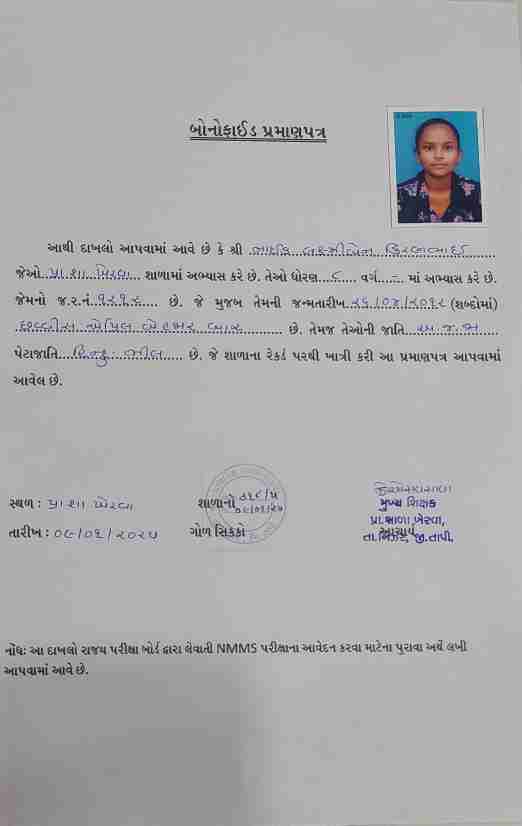 બોનોફાઈડ પ્રમાણપત્ર
આથી દાખલો આપવામાં આવે છે કે શ્રી
જેઓ પ્રા.શા શાળામાં અભ્યાસ કરે છે. તેઓ ધોરણ ૮ વર્ગ - માં અભ્યાસ કરે છે.
જેમનો જ.ર.નં. છે. જે મુજબ તેમની જન્મતારીખ ૨૬/૦૪/૨૦૧૨ (શબ્દોમાં)
છવ્વીસ એપ્રિલ બે હજાર બાર છે. તેમજ તેઓની જાતિ અ.જ.જા
પેટાજાતિ હિન્દુ ભીલ છે. જે શાળાના રેકર્ડ પરથી ખાત્રી કરી આ પ્રમાણપત્ર આપવામાં
આવેલ છે.
સ્થળ : પ્રા શા ખેરવા શાળાનો
મુખ્ય શિક્ષક
તારીખ : ૦૯/૦૬/૨૦૨૫ ગોળ સિક્કો
પ્રા.શાળા ખેરવા,
આચાર્ય
જી.તાપી.
નોંધઃ આ દાખલો રાજય પરીક્ષા બોર્ડ દ્વારા લેવાતી NMMS પરીક્ષાના આવેદન કરવા માટેના પુરાવા અર્થે લખી
આપવામાં આવે છે.